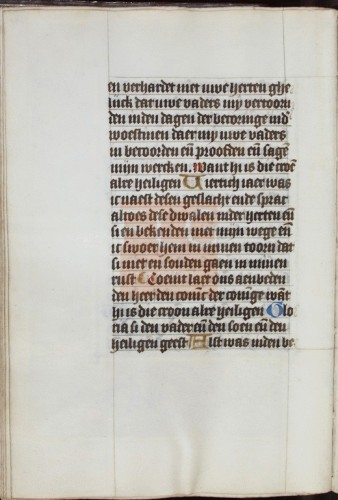 en verhardet niet uwe herten ghe
lijck dat uwe vaders mij vertoorn
den in den dagen der becoringe in dꝰ
woestinen daer mij uwe vaders
in becoorden en̄ proofden en̄ sagē
mijn wercken. want hi is die croē
alre heiligen Viertich iaer was
ic naest desen geslacht ende sprac
altoes dese dwalen in der herten en̄
si en bekenden niet mijn wege en̄
ic swoer hem in minen toorn dat
si niet en souden gaen in minen
rust Coemt laet ons aenbeden
den heer den coninc der coninge wāt
hi is die croon alre heiligen Glo
ria si den vader en̄ den soen en̄ den
heiligen geest Alst was inden be